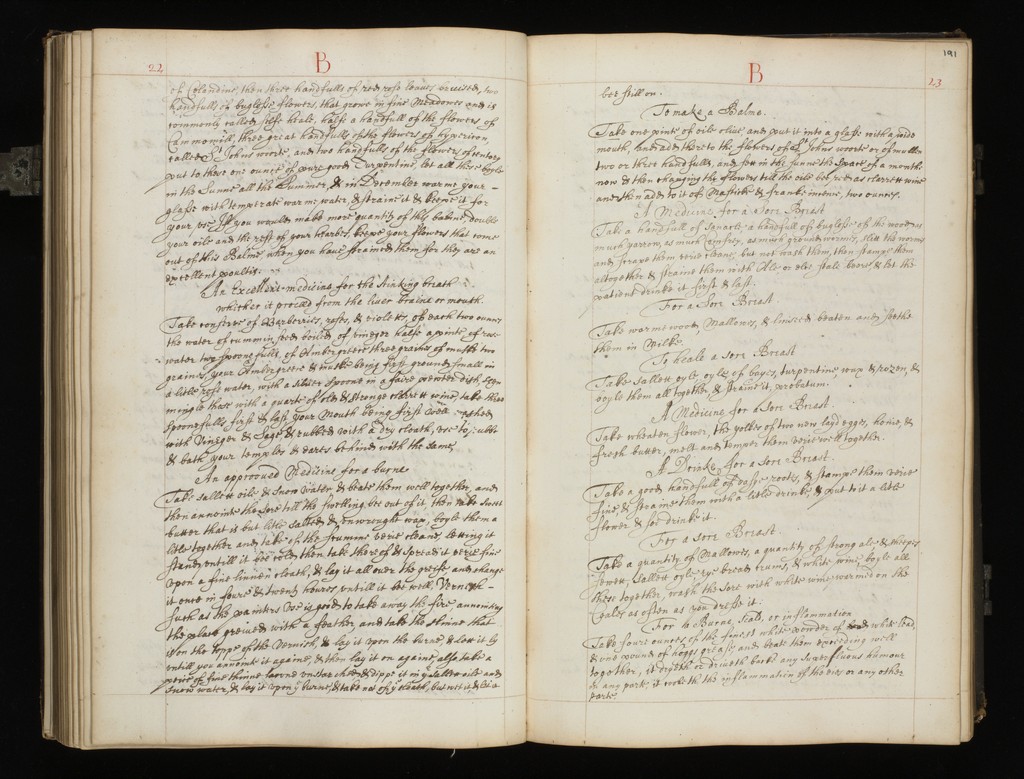 22
B
of Celandine, then three handfulls of red rose leaves bruised, two
handfulls of buglosse flowers, that grow in fine Meadowes and is
commonly called selfe heale, halfe a handfull of the flowers of
Cammomill, three great handfulls of the flowers of hypericon,
called St Johns worte, and two handfulls of the flowers of centory
put to these one ounce of pure good Turpentine, let all these boyle
in the Sunne all the Summer, & in December warme your
glasse with temperate warme water, & straine it & keepe it for
your use. If you would make more quantity of this balme, double
your oile and the rest of your hearbes, keepe your flowers that come
out of this Balme, when you have strained them, for they are an
excellent poultis.
An Excellent medicine for the stinking breath
whether it proceed from the liver braine or mouth.
Take conserve of Barberries, roses, & violetts, of each two ounces
the water of cummin seed boiled of vineger halfe a pinte, of rose
water two spoonefulls, of Ambergreece three graines of muske two
graines, your Ambergreece & muske being first ground small in
a little rose water, with a silver spoone in a faire pewter dish, then
mingle those with a quarte of old & stronge clarrett wine, take three
spoonefulls first & last your Mouth being first well washed
with Vineger & Sage & rubbed with a dry cloath, use to rubbe
& bath your temples & eares behind with the same.
An approoved Medicine for a burne
Take sallett oile & snow water & beate them well together, and
then annointe the sore till the swelling bee out of it, then take sweet
butter that is but little salted & unwrought wax, boyle them a
little together and take of the scumme verie cleane, letting it
stand untill it bee cold, then take thereof & spread it verie fine
upon a fine linnen cloath, & lay it all over the greife and change
it once in foure & twenty houres, untill it bee well, Vernish
such as the painters use is good to take away the fire, annointing
the place greived with a feather and take the skinne that
is on the toppe of the Vernish, & lay it upon the burne & lett it ly
untill you annoint it againe, & then lay it on againe, also take a
peice of fine thinne lawne unstarched & dipp it in y sallett oile and
snow water, & lay it upon y burne, & take not of y cloath, but wet it & let it
191
B
23
bee still on.
To make a Balme.
Take one pinte of oile olive and put it into a glasse with a wide
mouth, and add thereto the flowers of St Johns worte or of mullen
two or three handfulls, and sett in the sunne the space of a month
now & then changing the flowers till the oile bee red as clarrett wine
and then add to it of Mastick & frankincense, two ounces.
A Medicine for a sore Breast
Take a handfull of Sanacle, a handfull of buglosse of the wood as
much yarrow, as much comfrey, as much ground wormes, slitt the wormes
and scrape them verie cleane, but not wash them, then stampe them
alltogether & straine them with Ale or els stale beere, & let the
patient drinke it first & last.
For a Sore Breast.
Take warmewood, Mallowes, & linseed beaten and seethe
them in Milke.
To heale a sore Breast
Take sallett oyle, oyle of bayes, turpentine wax & rozen, &
boyle them all together, & straine it, probatum.
A Medicine for a Sore Breast.
Take wheaten flower, the yolkes of two new layd eggs, honie, &
fresh butter, melt and temper them verie well together.
A Drinke for a Sore Breast.
Take a good handfull of dasie roots, & stampe them verie
fine, & straine them with a little drinke, & put to it a little
flower & soe drinke it.
For a Sore Breast.
Take a quantity of Mallowes, a quantity of strong ale & sheeps
suett, sallett oyle, rye bread crums, & white wine, boyle all
these together, wash the sore with white wine warmed on the
coales as often as you dresse it.
For a Burne, Scald, or inflammation
Take foure ounces of the finest white powder of white lead,
& one pound of hoggs grease, and beat them exceeding well
together, it dryeth or driveth back any superfluous humour
in any part, it cooleth the inflammation of the eies or any other
parts.